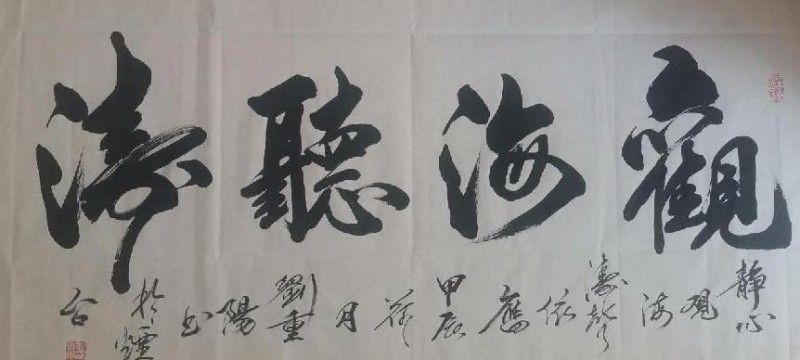 觀海聽濤
静心观海濤聲依舊甲辰荷月劉重陽书於煙台